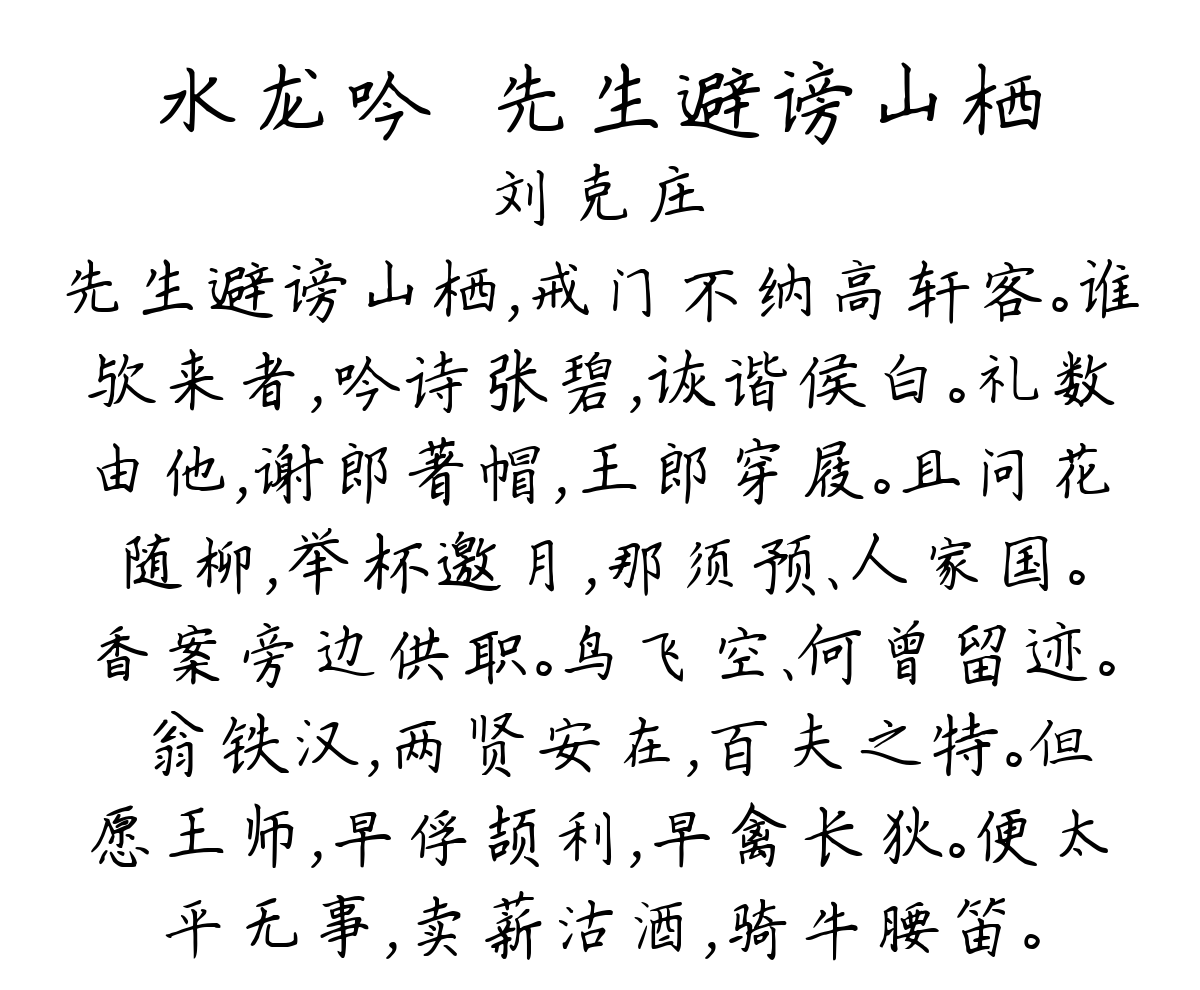 水龙吟 先生避谤山栖
刘克庄
先生避谤山栖,戒门不纳高轩客。谁
欤来者,吟诗张碧,诙谐侯白。礼数
由他,谢郎著帽,王郎穿屐。且问花
随柳,举杯邀月,那须预、人家国。
香案旁边供职。鸟飞空、何曾留迹。
翁铁汉,两贤安在,百夫之特。但
愿王师,早俘颉利,早禽长狄。便太
平无事,卖薪沽酒,骑牛腰笛。